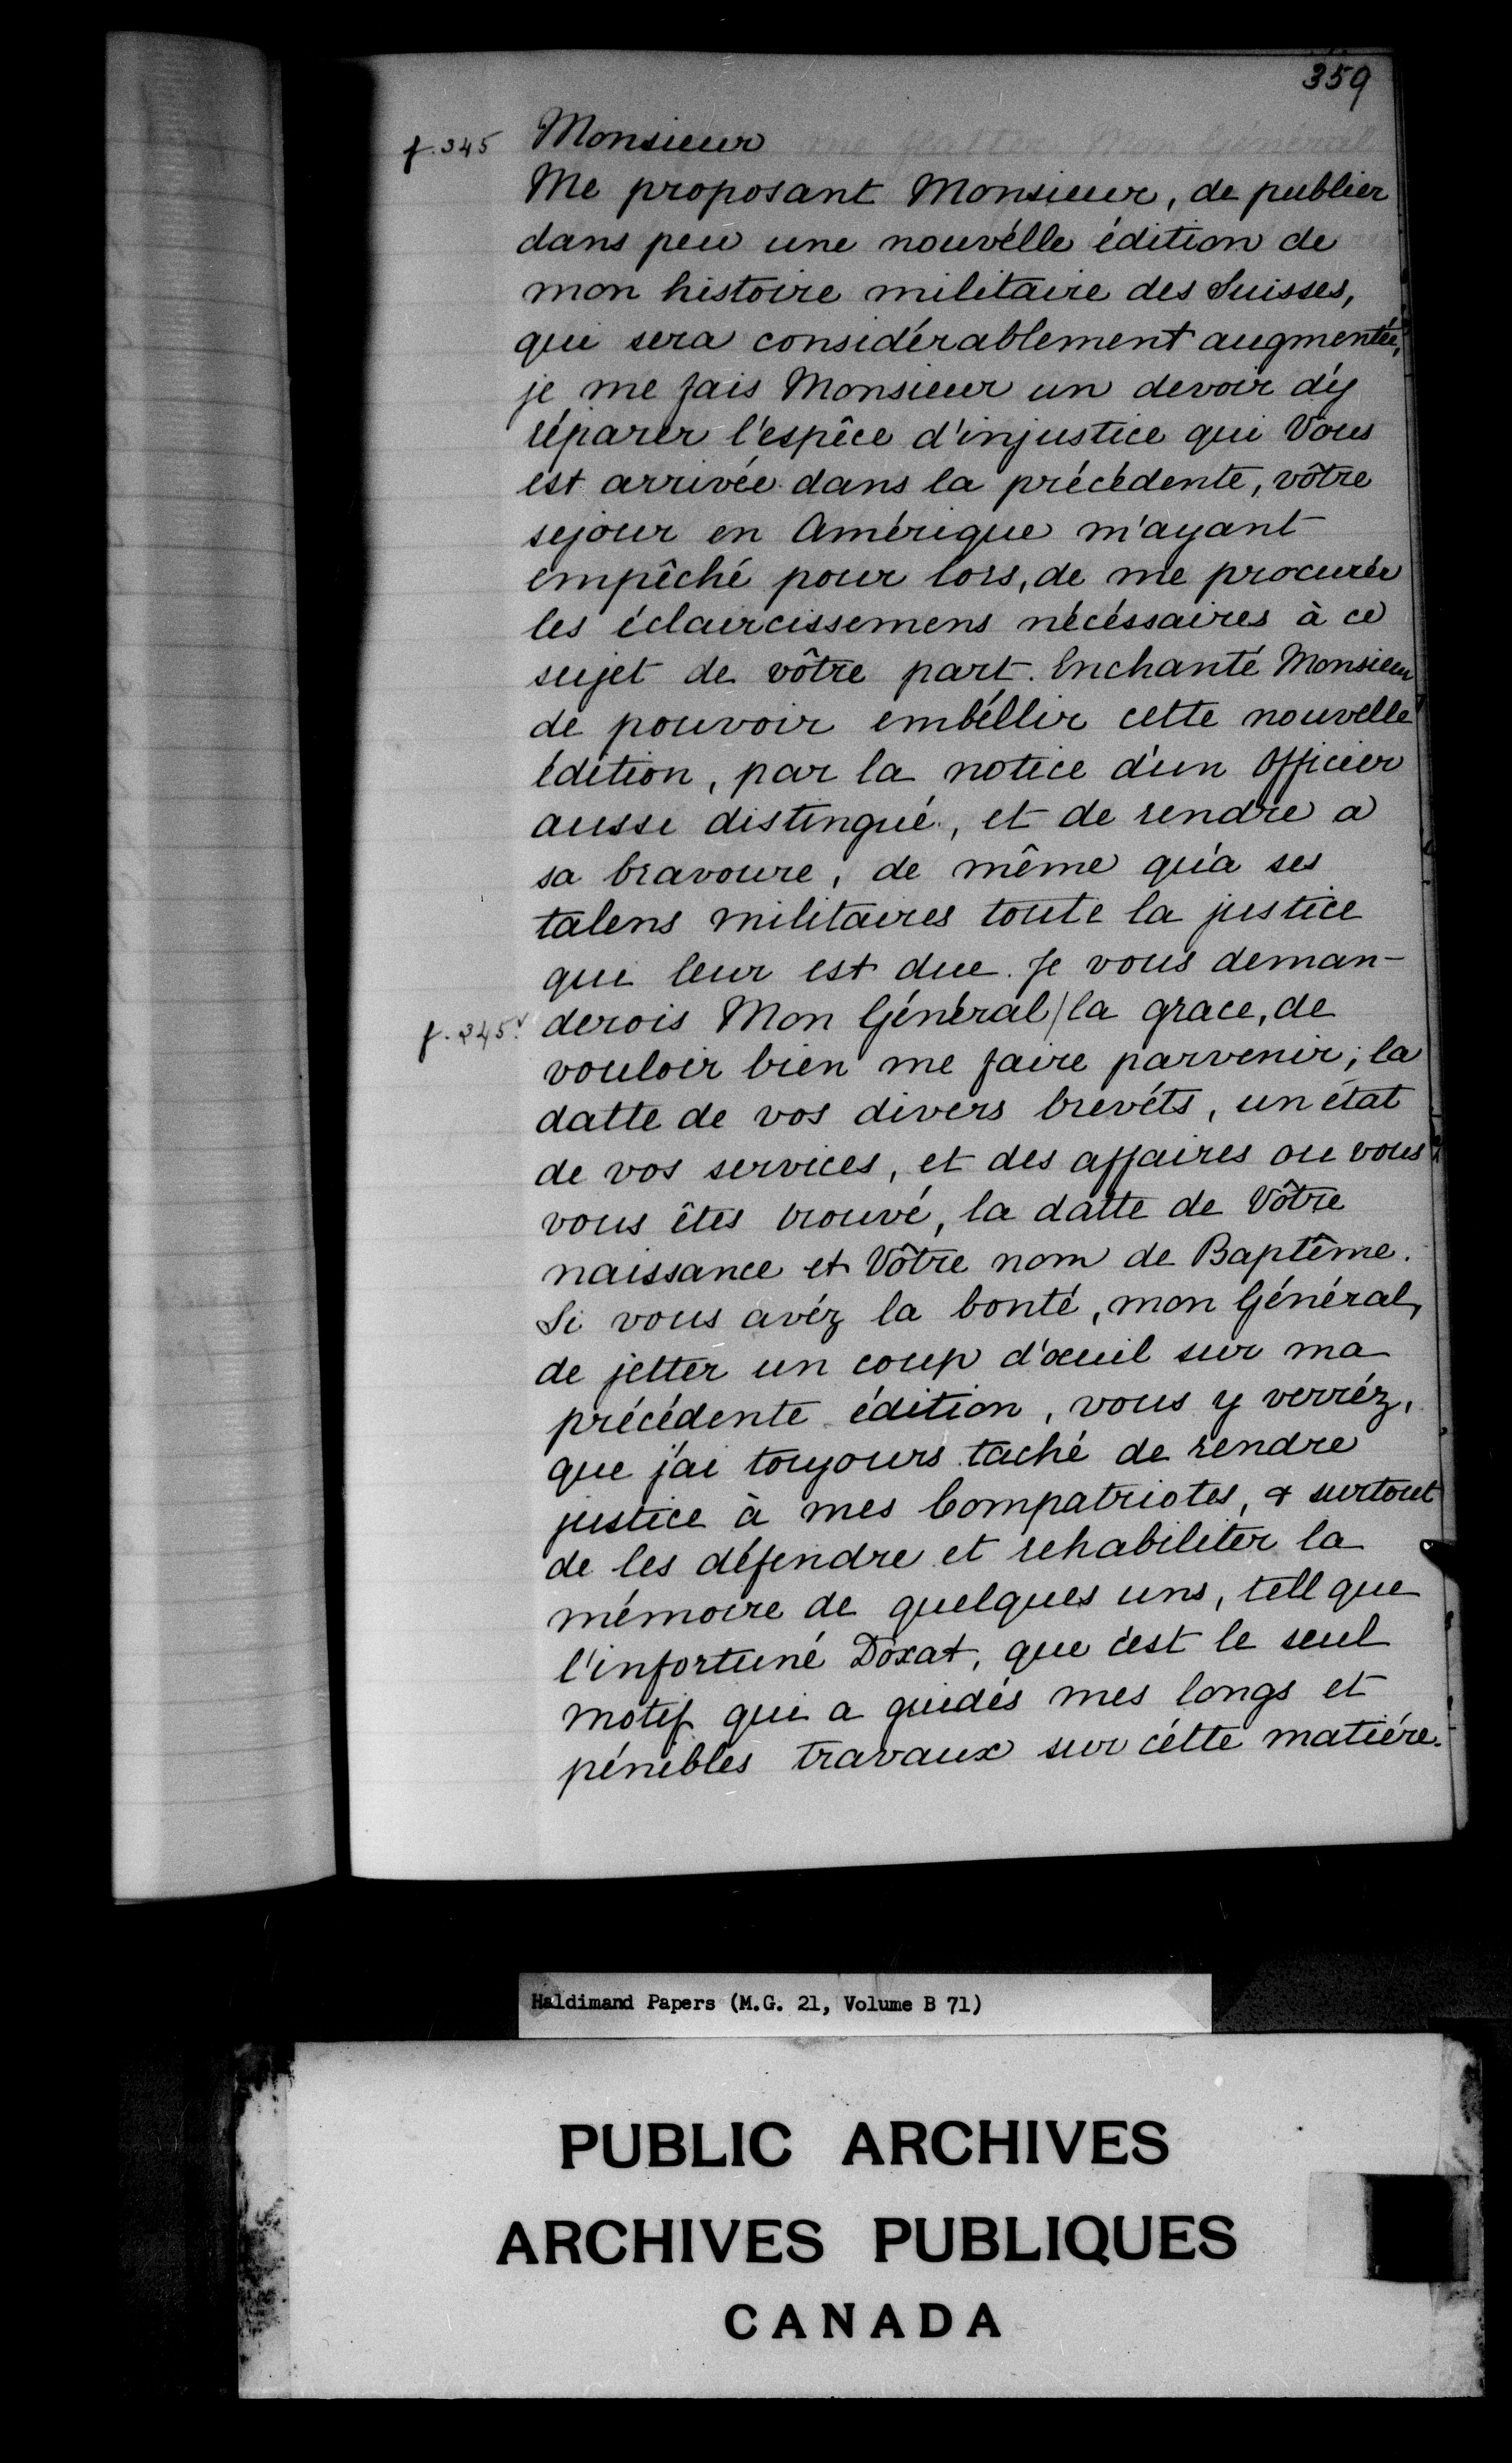 359
f. 345 Monsieur
Me proposant Monsieur, de publier
dans peu une nouvélle édition de
mon histoire militaire des Suisses,
qui sera considérablement augmentée,
je me fais Monsieur un devoir d'y
réparer l'espêce d'injustice qui Vous
est arrivée dans la précédente, vôtre
sejour en Amérique m'ayant
empêché pour lors, de me procurér
les éclaircissemens nécéssaires à ce
sujet de vôtre part. Enchanté Monsieur
de pouvoir embéllir cette nouvelle
édition, par la notice d'un Officier
aussi distingué, et de rendre a
sa bravoure, de même qu'a ses
talens militaires toute la justice
qui leur est due. Je vous deman-
f. 345v derois Mon Général/la grace, de
vouloir bien me faire parvenir; la
datte de vos divers brevéts, un état
de vos services, et des affaires ou vous
vous êtes trouvé, la datte de Vôtre
naissance et Vôtre nom de Baptême.
Si vous avéz la bonté, mon Général,
de jetter un coup d'œuil sur ma
précédente édition, vous y verréz,
que j'ai toujours taché de rendre
justice à mes Compatriotes, & surtout
de les défendre et rehabiliter la
mémoire de quelques uns, tell que
l'infortuné Doxat, que c'est le seul
motif qui a guidés mes longs et
pénibles travaux sur cétte matiére.
Haldimand Papers (M.G. 21, Volume B 71)
PUBLIC ARCHIVES
ARCHIVES PUBLIQUES
CANADA